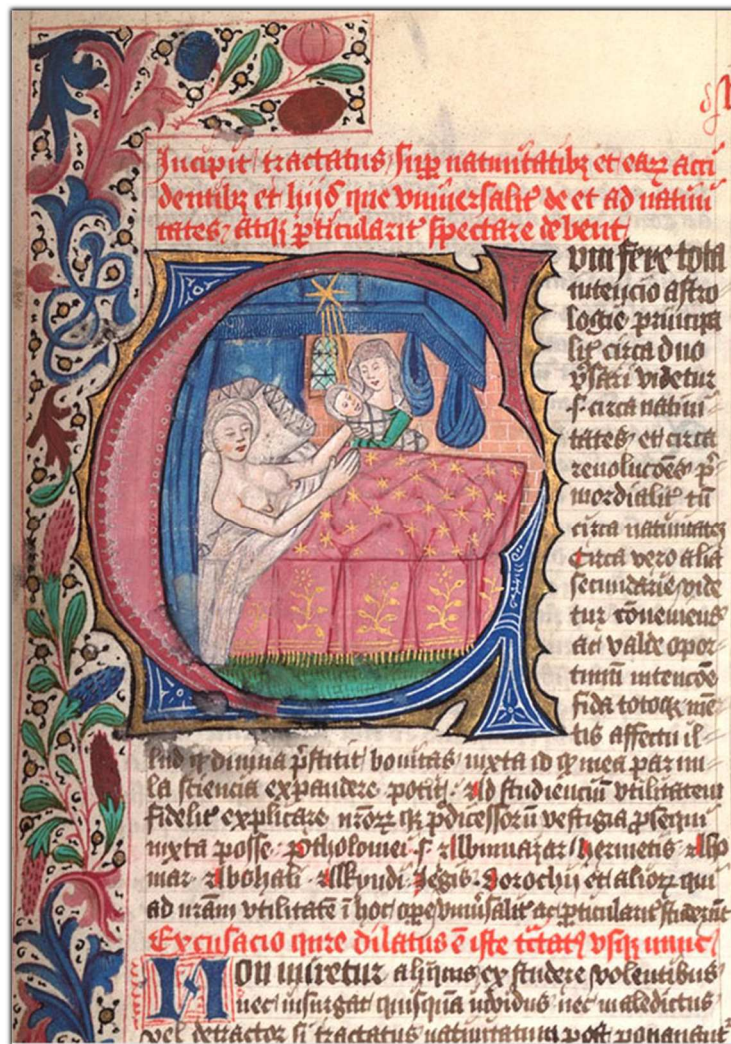 Incipit tractatus sup natiuitatibꝫ et eaꝝ acci
dentibꝫ et hijs que vniuersalit de et ad natiui
tates atqꝫ pticularit spectare debent
vm fere tota
intencio astro
logie principa
lit circa duo
vsari videtur
.s. circa natiui-
tates et circa
reuolucões p
mordialit tn
circa natiuitates
Circa vero alia
secundarie vide
tur cōueniens
ac valde opor-
tunū intencōe
fida totoqꝫ mē-
tis affectu il-
lud qd diuina pstitit bonitas iuxta id qd mea parui
la sciencia expandere potit. Ad studienciū vtilitatem
fidelit explicare nroꝝ qꝫ pdicessorū vestigia psequi
iuxta posse Ptholomei .s. Albumazar Hermetis Alho
mar Albohali Alkyndi Zegis Dorochij et alioꝝ qui
ad nram vtilitatē ī hoc opere vniusalit ac pticularit studerūt
Excusacio quare dilatus ē iste tctatꝰ vsqꝫ nunc
Non miretur aliquis ex studere volentibus
nec insurgat quisquā inuidus nec maledictus
vel detractor si tractatus natiuitatum post ponantur